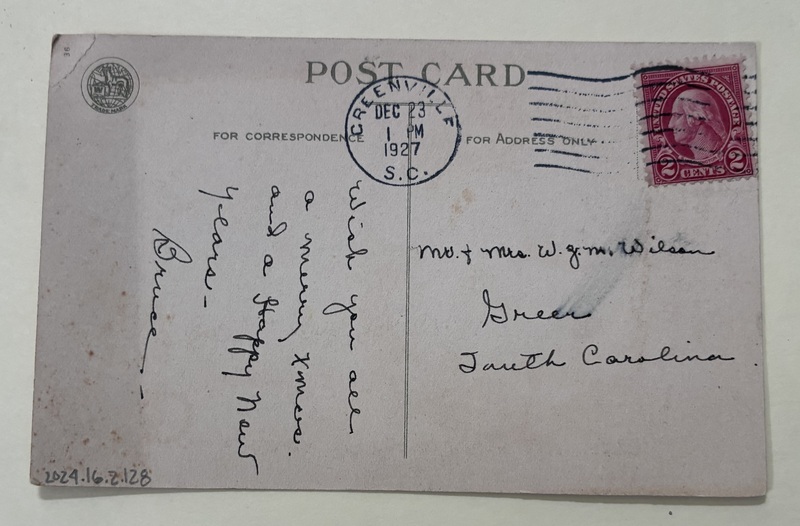 36
TRADE MARK
POST CARD
GREENVILLE
DEC 23
1 PM
1927
S.C.
UNITED STATES POSTAGE
2 CENTS 2
FOR CORRESPONDENCE
FOR ADDRESS ONLY
Wish you all
a merry Xmas.
and a Happy New
Years-
Bruce-
Mr. & Mrs. W. J. M. Wilson
Greer
South Carolina
2024.16.2.128